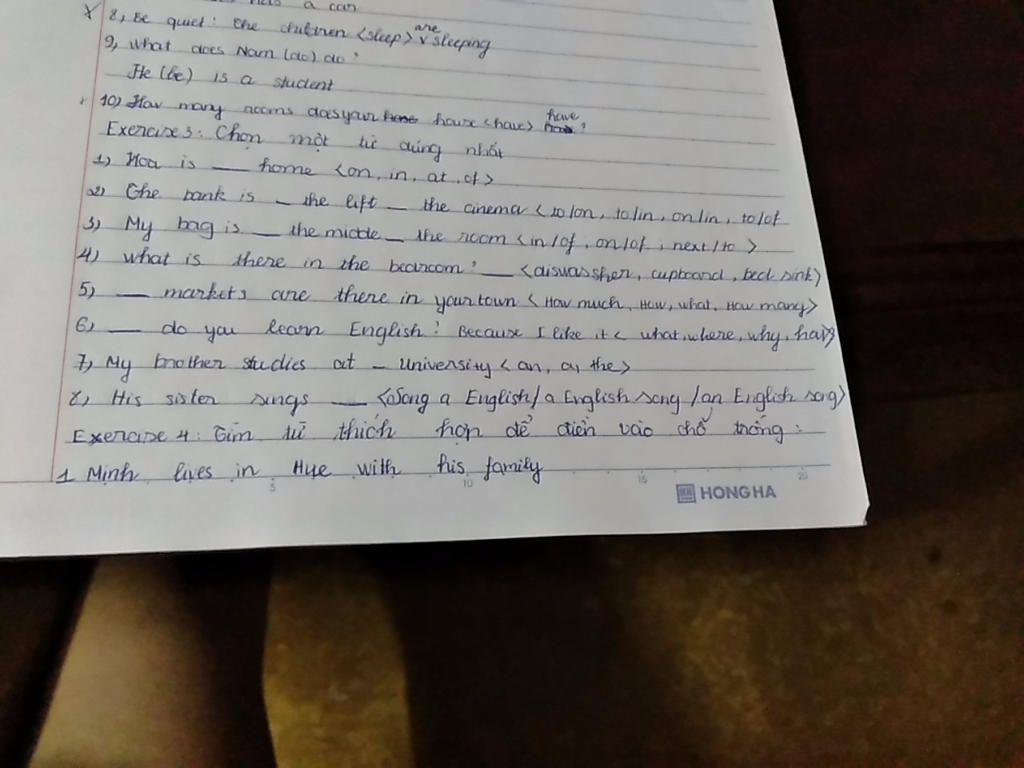 has a car
8, Be quiet! the children <sleep> are sleeping
9, what does Nam (do) do?
He (be) is a student
10) How many rooms does your house <have> have?
Exercise 3: Chọn một từ đúng nhất
1) Hoa is __ home <on, in, at, of>
2) The bank is _ the left _ the cinema < to/on, to/in, on/in, to/of
3) My bag is __ the middle _ the room < in/of, on/of, next/to >
4) what is there in the bedroom? __ <diswassher, cupboard, bed sink)
5) __ markets are there in your town < How much, How, what, How many>
6) __ do you learn English? Because I like it < what, where, why, how>
7) My brother studies at _ University < an, a, the>
8, His sister sings __ <Song a English/a English song /an English song>
Exercise 4: Tìm từ thích hợp để điền vào chỗ trống:
1 Minh lives in Hue with his family
5 10 15 20
HONG HA